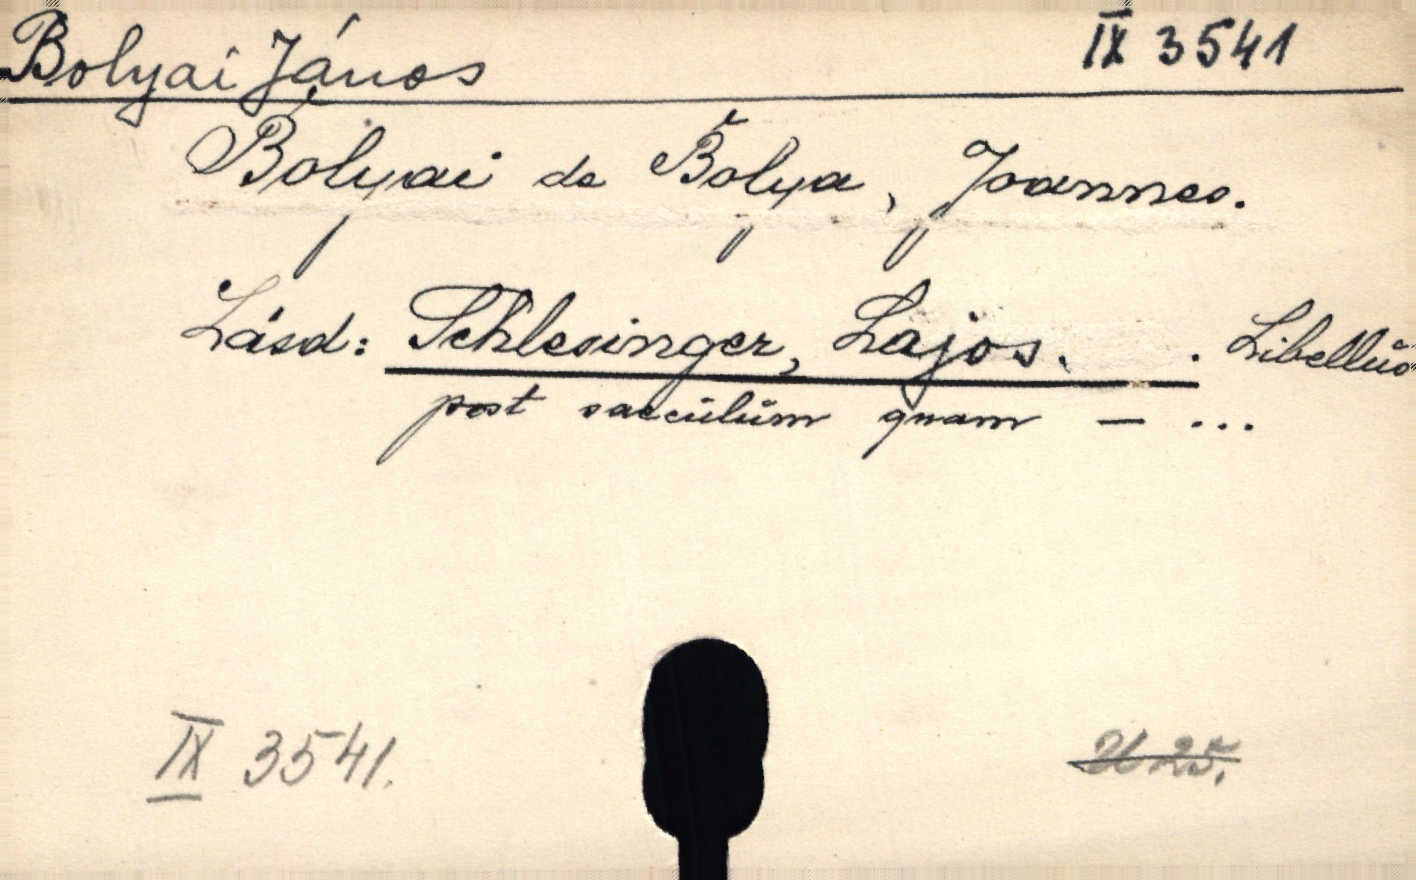 Bolyai János IX 3541
Bolyai de Bolya, Joannes.
Lásd: Schlesinger, Lajos. . Libellus
post saeculum quam — ...
IX 3541.
U 25.